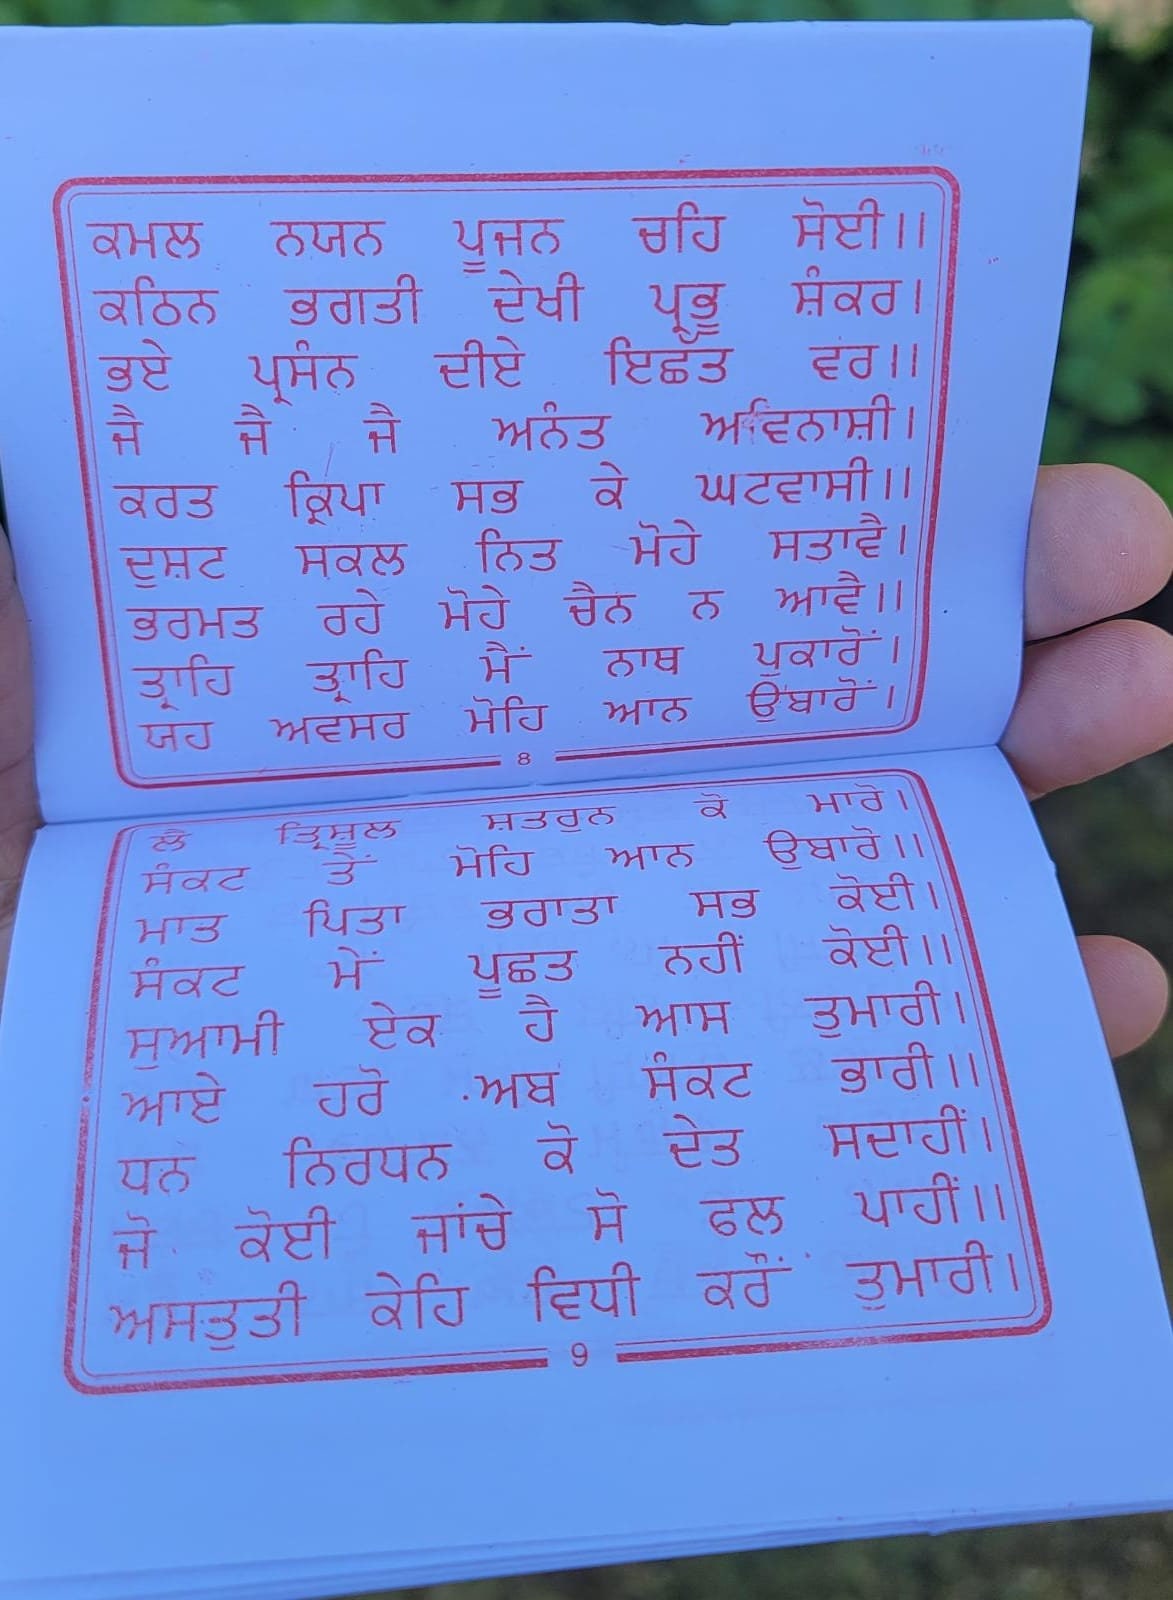 ਕਮਲ ਨਯਨ ਪੂਜਨ ਚਹਿ ਸੋਈ।।
ਕਠਿਨ ਭਗਤੀ ਦੇਖੀ ਪ੍ਰਭੂ ਸ਼ੰਕਰ।
ਭਏ ਪ੍ਰਸੰਨ ਦੀਏ ਇਛਤ ਵਰ।।
ਜੈ ਜੈ ਜੈ ਅਨੰਤ ਅਵਿਨਾਸ਼ੀ।
ਕਰਤ ਕ੍ਰਿਪਾ ਸਭ ਕੇ ਘਟਵਾਸੀ।।
ਦੁਸ਼ਟ ਸਕਲ ਨਿਤ ਮੋਹੇ ਸਤਾਵੈ।
ਭਰਮਤ ਰਹੇ ਮੋਹੇ ਚੈਨ ਨ ਆਵੈ।।
ਤ੍ਰਾਹਿ ਤ੍ਰਾਹਿ ਮੈਂ ਨਾਥ ਪੁਕਾਰੋਂ।
ਯਹ ਅਵਸਰ ਮੋਹਿ ਆਨ ਉਬਾਰੋਂ।
8
ਲੈ ਤ੍ਰਿਸ਼ੂਲ ਸ਼ਤਰੁਨ ਕੋ ਮਾਰੋ।
ਸੰਕਟ ਤੇਂ ਮੋਹਿ ਆਨ ਉਬਾਰੋ।।
ਮਾਤ ਪਿਤਾ ਭਰਾਤਾ ਸਭ ਕੋਈ।
ਸੰਕਟ ਮੇਂ ਪੂਛਤ ਨਹੀਂ ਕੋਈ।।
ਸੁਆਮੀ ਏਕ ਹੈ ਆਸ ਤੁਮਾਰੀ।
ਆਏ ਹਰੋ ਅਬ ਸੰਕਟ ਭਾਰੀ।।
ਧਨ ਨਿਰਧਨ ਕੋ ਦੇਤ ਸਦਾਹੀਂ।
ਜੋ ਕੋਈ ਜਾਂਚੇ ਸੋ ਫਲ ਪਾਹੀਂ।।
ਅਸਤੁਤੀ ਕੇਹਿ ਵਿਧੀ ਕਰੌਂ ਤੁਮਾਰੀ।
9